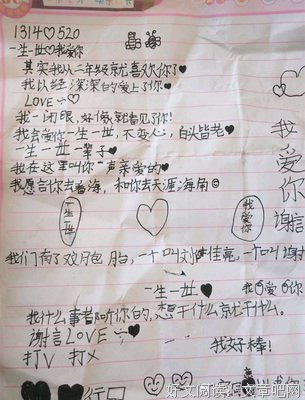 1314♡520
一生一世♡我爱你
其实我从二年级就喜欢你了♥
我以经深深的爱上了你♥
LOVE～♡
我一闭眼，好像就看见了你！
我会爱你一生一世，不变心，白头皆老♥
一生一世一辈子♥
我在这里叫你一声亲爱的♥
我愿意你去看海，和你去天涯海角☺
一生一世
♡
我爱你
我爱你
谢信
我们有了双月包胎，一个叫刘佳亮，一个叫谢
一生一世♥
我爱你
我什么事者听你的，想干什么就干什么。
谢信LOVE～♡
打√ 打×
我好棒！
好文阅读：文章吧网